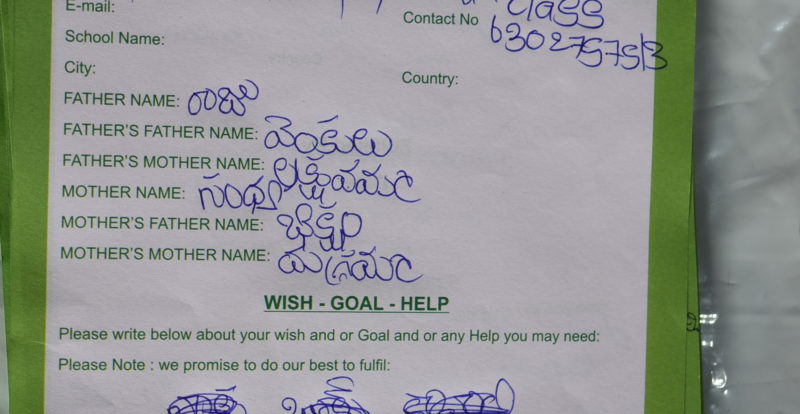 E-mail: class
Contact No 6302757513
School Name:
City:
Country:
FATHER NAME: రాజు
FATHER'S FATHER NAME: వెంకులు
FATHER'S MOTHER NAME:
MOTHER NAME: సంధ్య
MOTHER'S FATHER NAME:
MOTHER'S MOTHER NAME:
WISH - GOAL - HELP
Please write below about your wish and or Goal and or any Help you may need:
Please Note : we promise to do our best to fulfil: